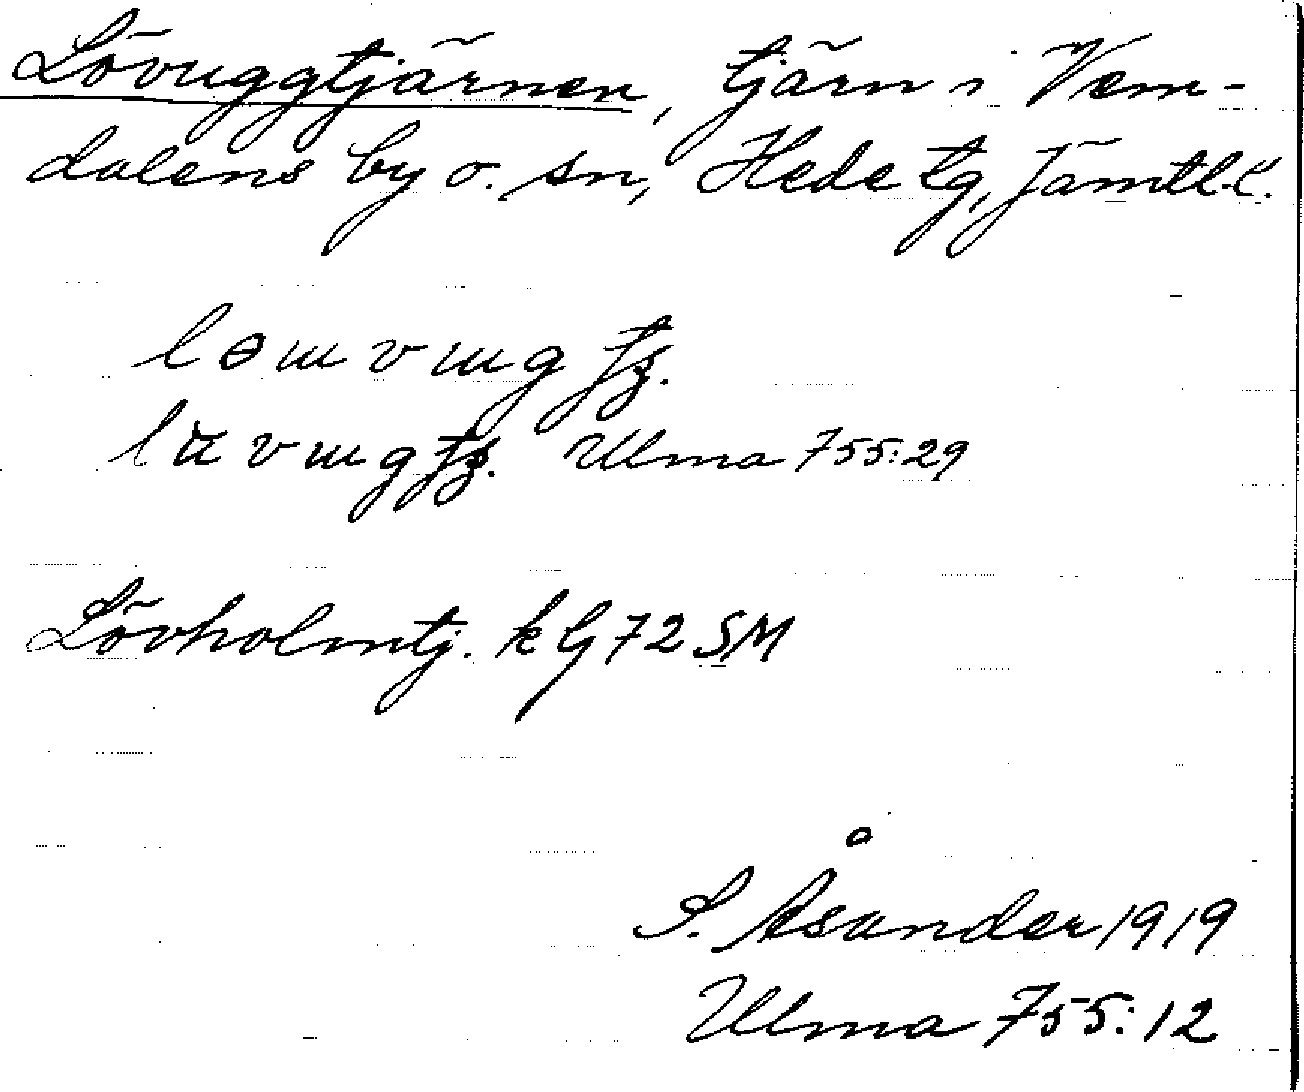 Lövuggtjärnen, tjärn i Vem-
dalens by o. sn, Hede tg, Jämtl. l.
Ulma 755:29
Lövholmtj. k G 72 SM
S. Åsander 1919
Ulma 755:12